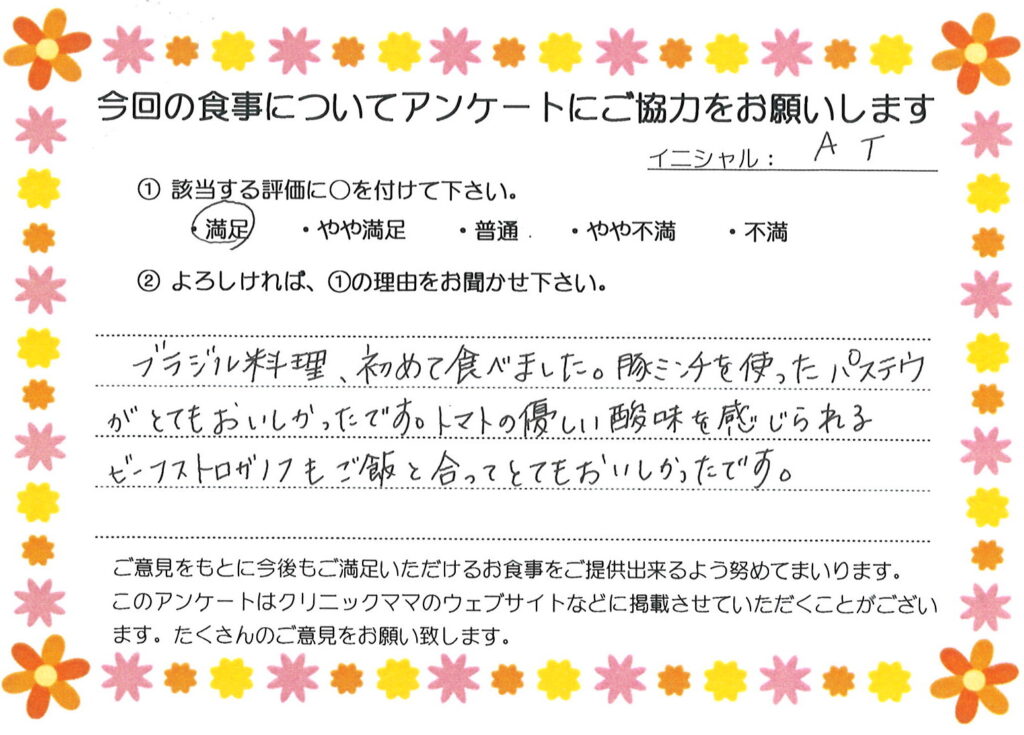 今回の食事についてアンケートにご協力をお願いします
イニシャル： A T
① 該当する評価に〇を付けて下さい。
・満足 ・やや満足 ・普通 ・やや不満 ・不満
② よろしければ、①の理由をお聞かせ下さい。
ブラジル料理、初めて食べました。豚ミンチを使ったパステウ
がとてもおいしかったです。トマトの優しい酸味を感じられる
ビーフストロガノフもご飯と合ってとてもおいしかったです。
ご意見をもとに今後もご満足いただけるお食事をご提供出来るよう努めてまいります。
このアンケートはクリニックママのウェブサイトなどに掲載させていただくことがござい
ます。たくさんのご意見をお願い致します。